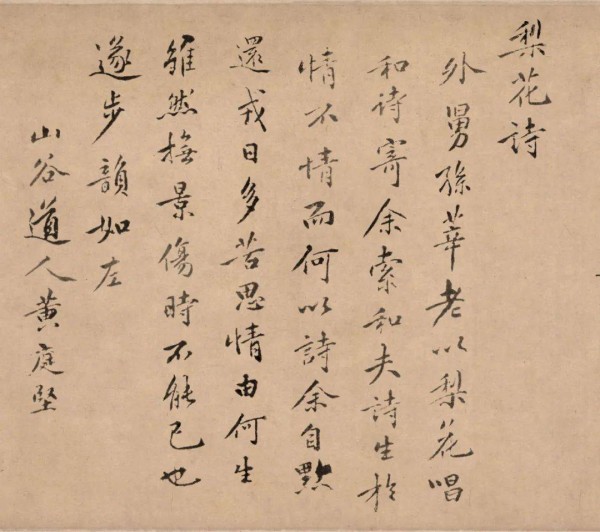 梨花詩
外舅孫莘老以梨花唱
和诗寄余索和夫詩生於
情不情而何以詩余自黔
還戎日多苦思情由何生
雖然撫景傷時不能已也
遂步韻如左
山谷道人黄庭堅